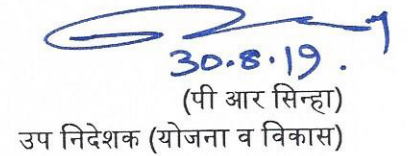 30.8.19.
(पी आर सिन्हा)
उप निदेशक (योजना व विकास)